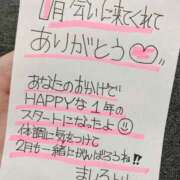 1月会いに来てくれて
ありがとう♡
あなたのおかげで
HAPPYな1年の
スタートになったよ☺
体調に気をつけて
2月も一緒にがんばろうね!!